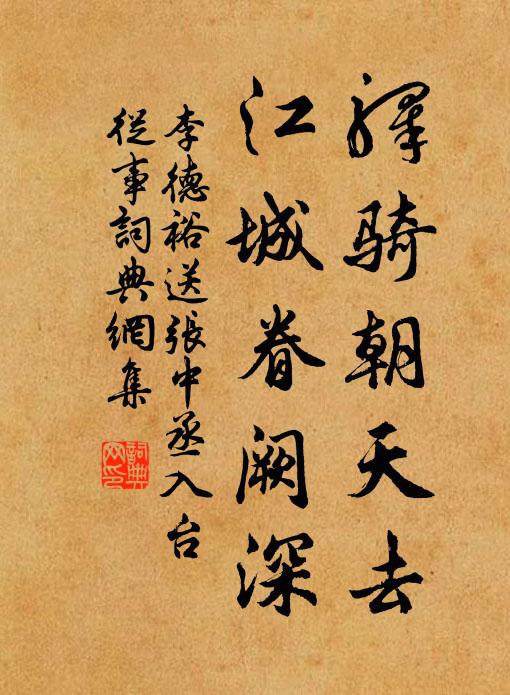 驛騎朝天去
江城眷闕深
李德裕送張中丞入台
從事詞典網集
詞典网印